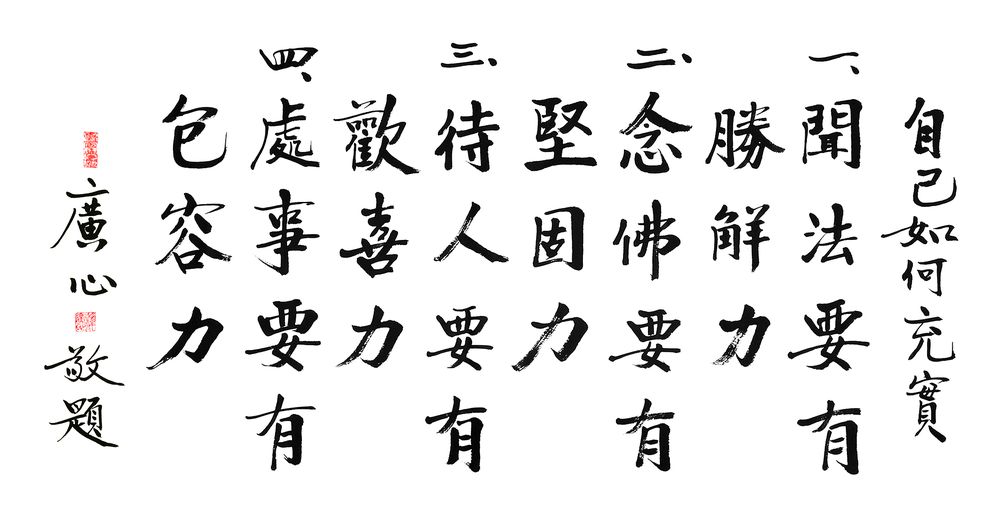 自己如何充實
一、聞法要有
勝解力
二、念佛要有
堅固力
三、待人要有
歡喜力
四、處事要有
包容力
廣心敬題